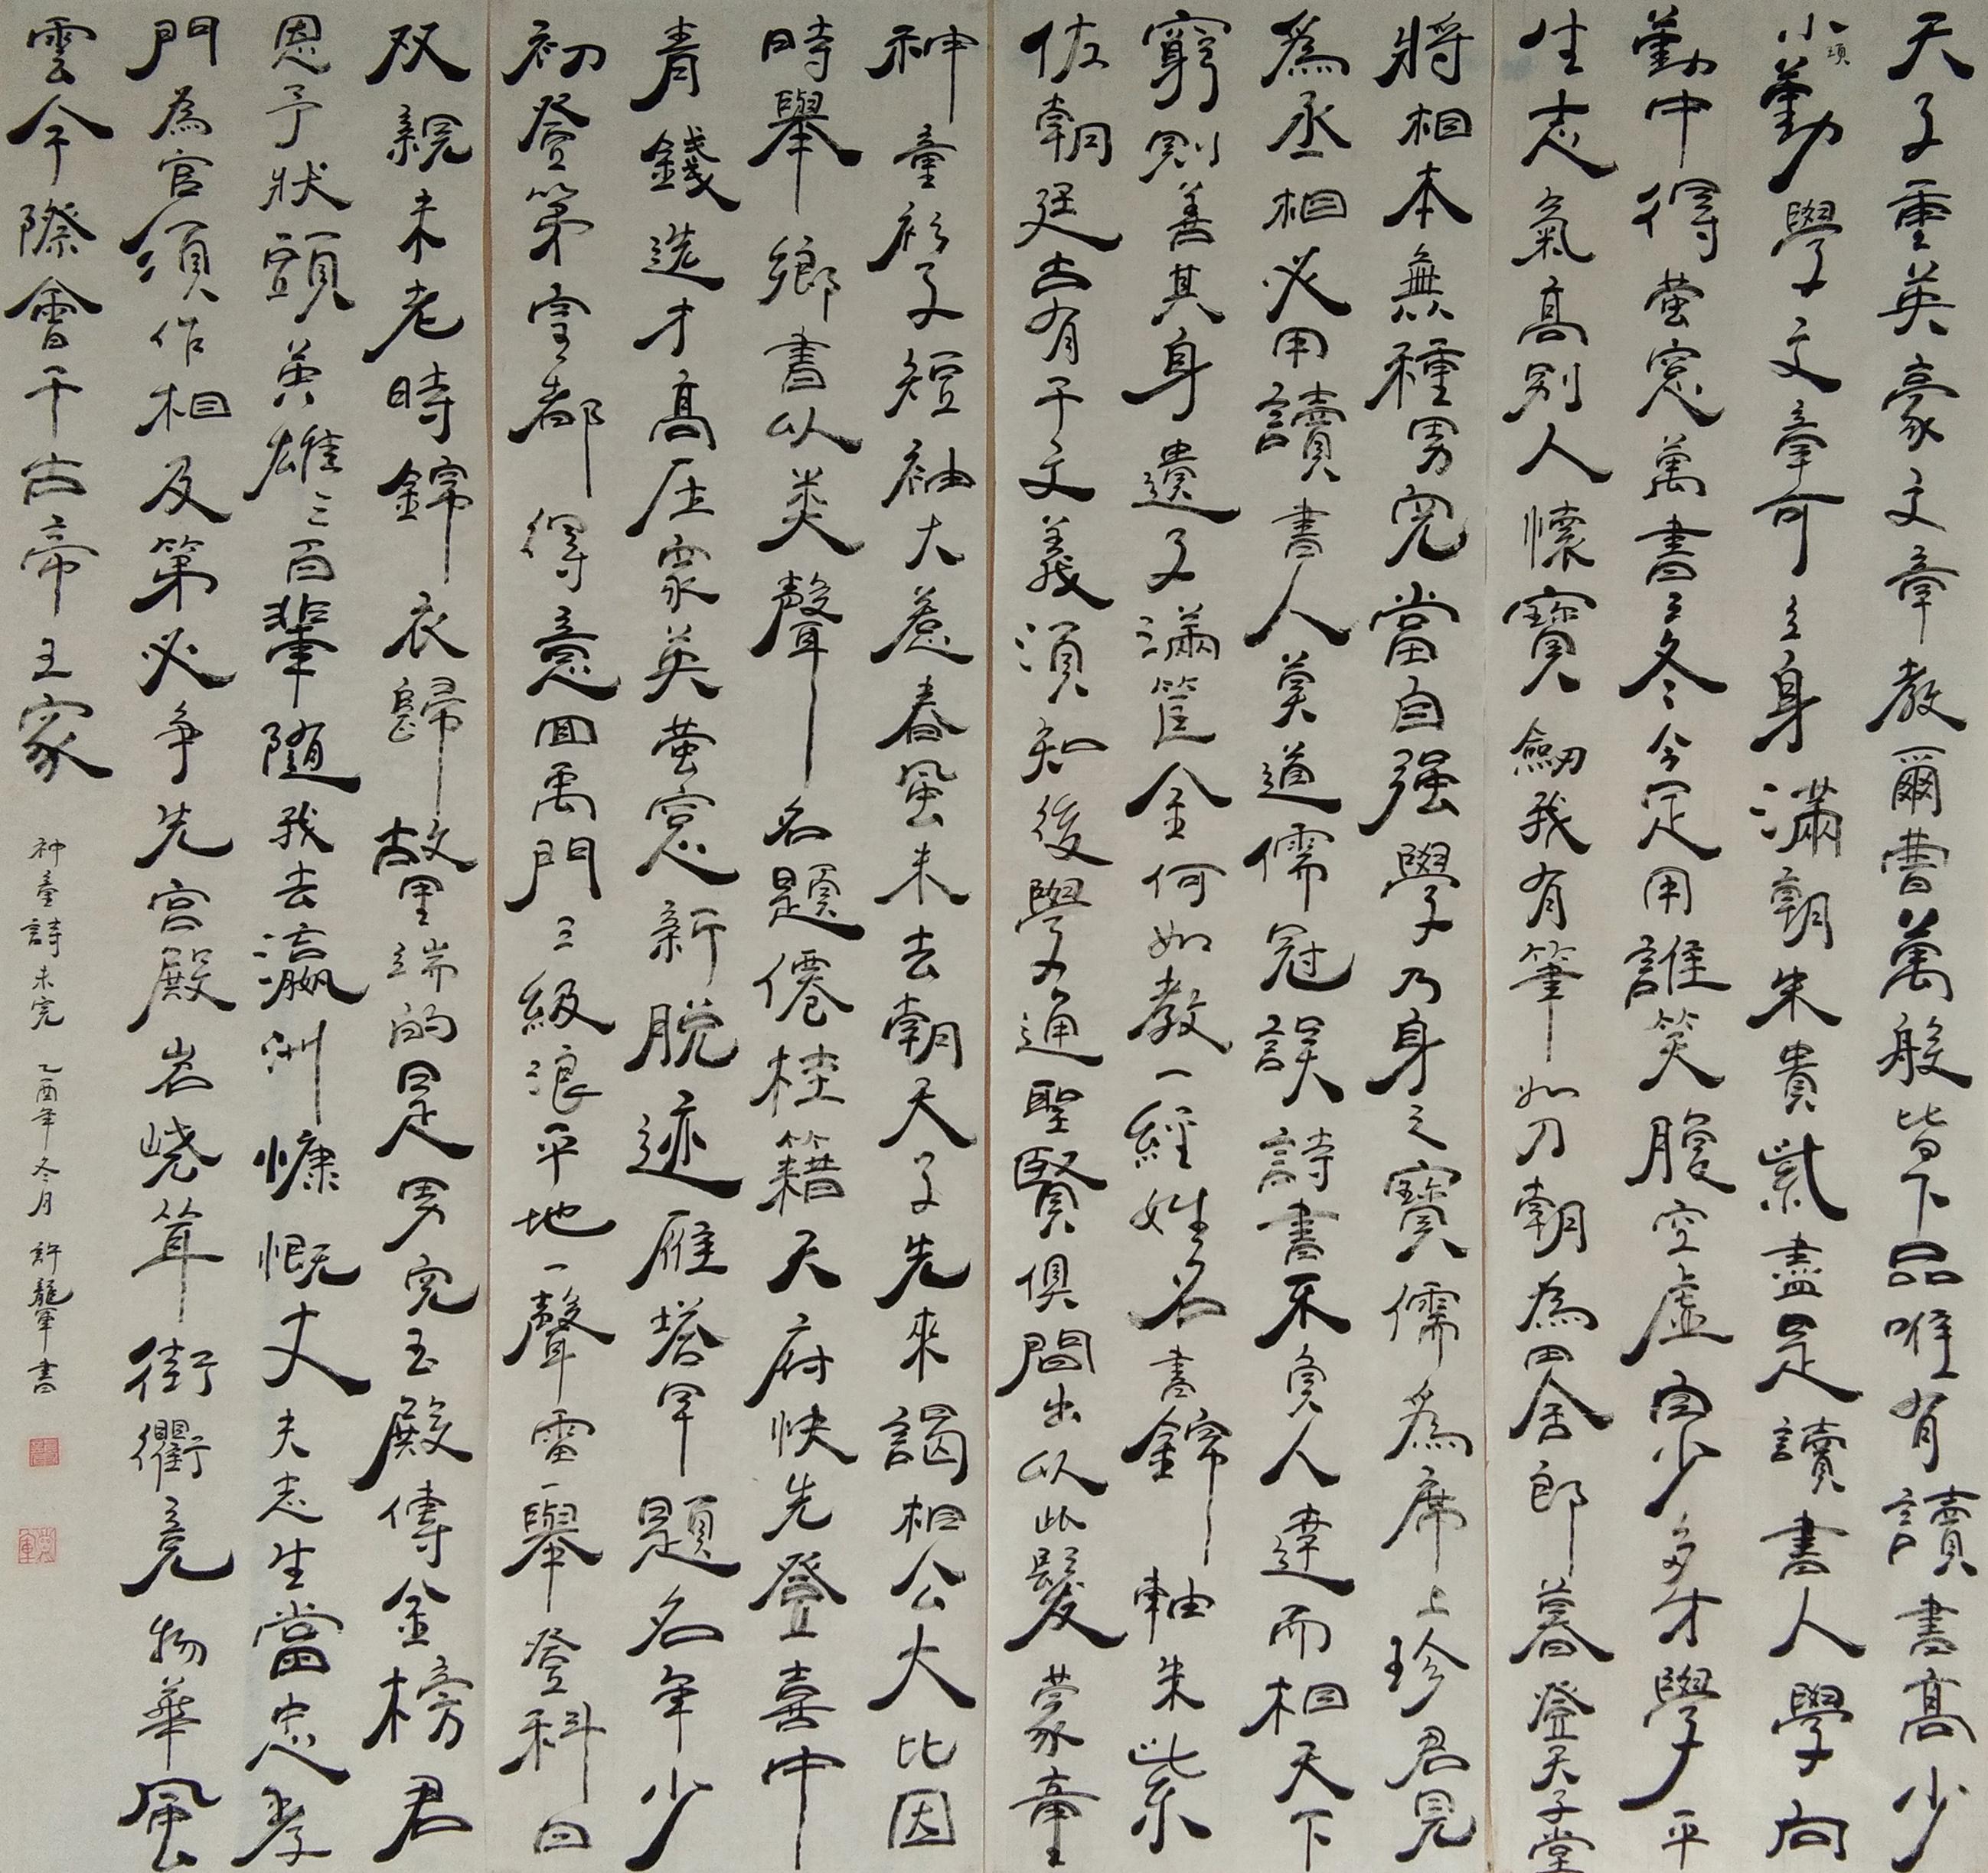 天子重英豪文章教爾曹萬般皆下品唯有讀書高少
小須勤學文章可立身滿朝朱貴紫盡是讀書人學向
勤中得螢窓萬書三冬今足用誰笑腹空虛自少多才學平
生志氣高別人懷寶劔我有筆如刀朝為田舍郎暮登天子堂
將相本無種男兒當自强學乃身之寶儒為席上珍君見
為丞相必用讀書人莫道儒冠誤詩書不負人達而相天下
窮則善其身遺子滿籯金何如教一經姓名書錦軸朱紫
佐朝廷古有千文義須知後學通聖賢俱間出以此發蒙童
神童衫子短袖大惹春風未去朝天子先來謁相公大比因
時舉鄉書以類聲名題僊桂籍天府快先登喜中
青錢选才高压眾英螢窓新脱迹雁塔早題名年少
初登第皇都得意回禹門三級浪平地一聲雷一舉登科日
双親未老時錦衣歸故里端的是男兒玉殿傳金榜君
恩予狀頭英雄三百輩隨我去瀛洲慷慨丈夫志生當忠孝
門為官須作相及第必争先宮殿岩嶢聳街衢竞物華風
雲今際會千古帝王家
神童詩未完 乙酉年冬月 許龍軍書